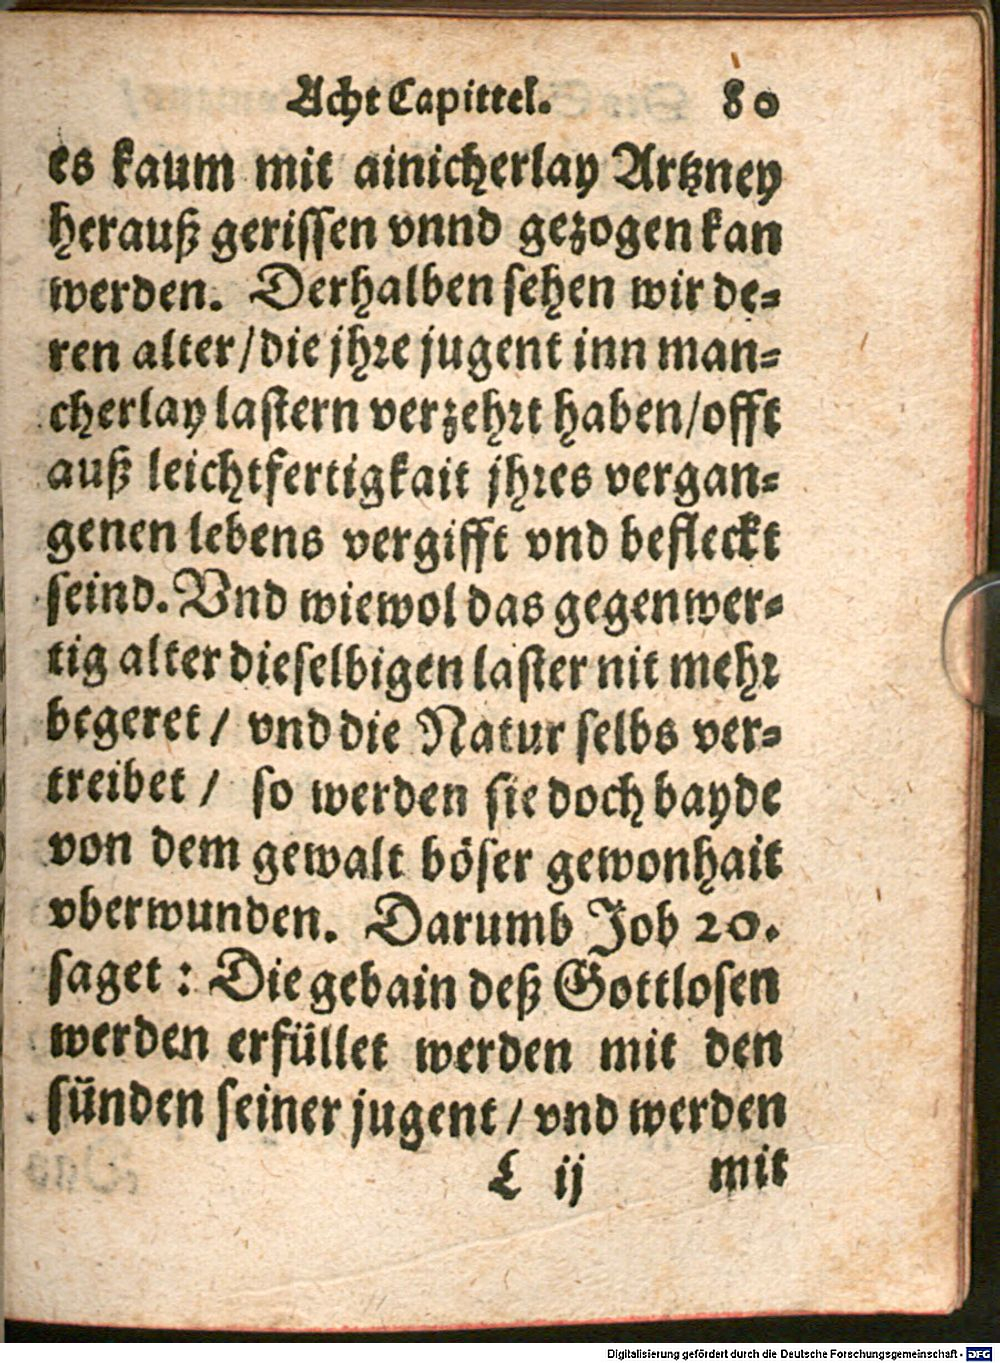 Acht Capittel. 80
es kaum mit ainicherlay Artzney
herauß gerissen vnnd gezogen kan
werden. Derhalben sehen wir de=
ren alter/die jhre jugent inn man=
cherlay lastern verzehrt haben/offt
auß leichtfertigkait jhres vergan=
genen lebens vergifft vnd befleckt
seind. Vnd wiewol das gegenwer=
tig alter dieselbigen laster nit mehr
begeret / vnd die Natur selbs ver=
treibet / so werden sie doch bayde
von dem gewalt böser gewonhait
vberwunden. Darumb Job 20.
saget : Die gebain deß Gottlosen
werden erfüllet werden mit den
sünden seiner jugent / vnd werden
L ij mit
Digitalisierung gefördert durch die Deutsche Forschungsgemeinschaft - DFG